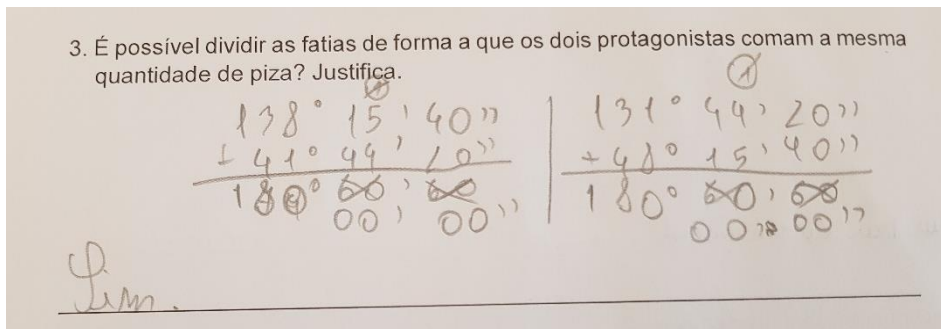 3. É possível dividir as fatias de forma a que os dois protagonistas comam a mesma
quantidade de piza? Justifica.
1 1
138° 15' 40'' 131° 44' 20''
+ 41° 44' 20'' + 48° 15' 40''
180° 60' 60'' 180° 60' 60''
00' 00'' 00'' 00''
Sim.